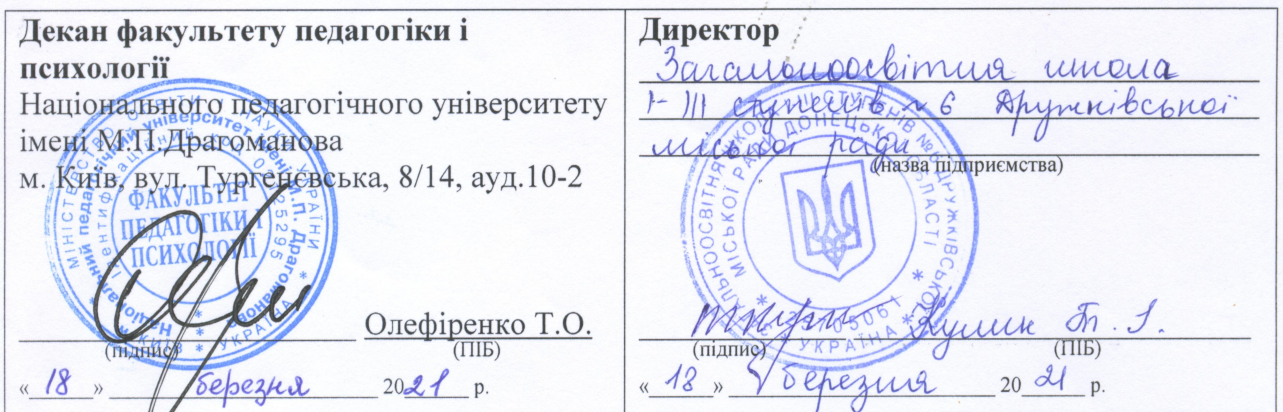 Декан факультету педагогіки і
психології
Національного педагогічного університету
імені М.П.Драгоманова
м. Київ, вул. Тургенєвська, 8/14, ауд.10-2
ФАКУЛЬТЕТ
ПЕДАГОГІКИ І
ПСИХОЛОГІЇ
Олефіренко Т.О.
(підпис) (ПІБ)
« 18 » березня 2021 р.
Директор
Загальноосвітня школа
І-ІІІ ступенів № 6 Дружківської
міської ради
(назва підприємства)
Кулик Т. І.
(підпис) (ПІБ)
« 18 » березня 2021 р.